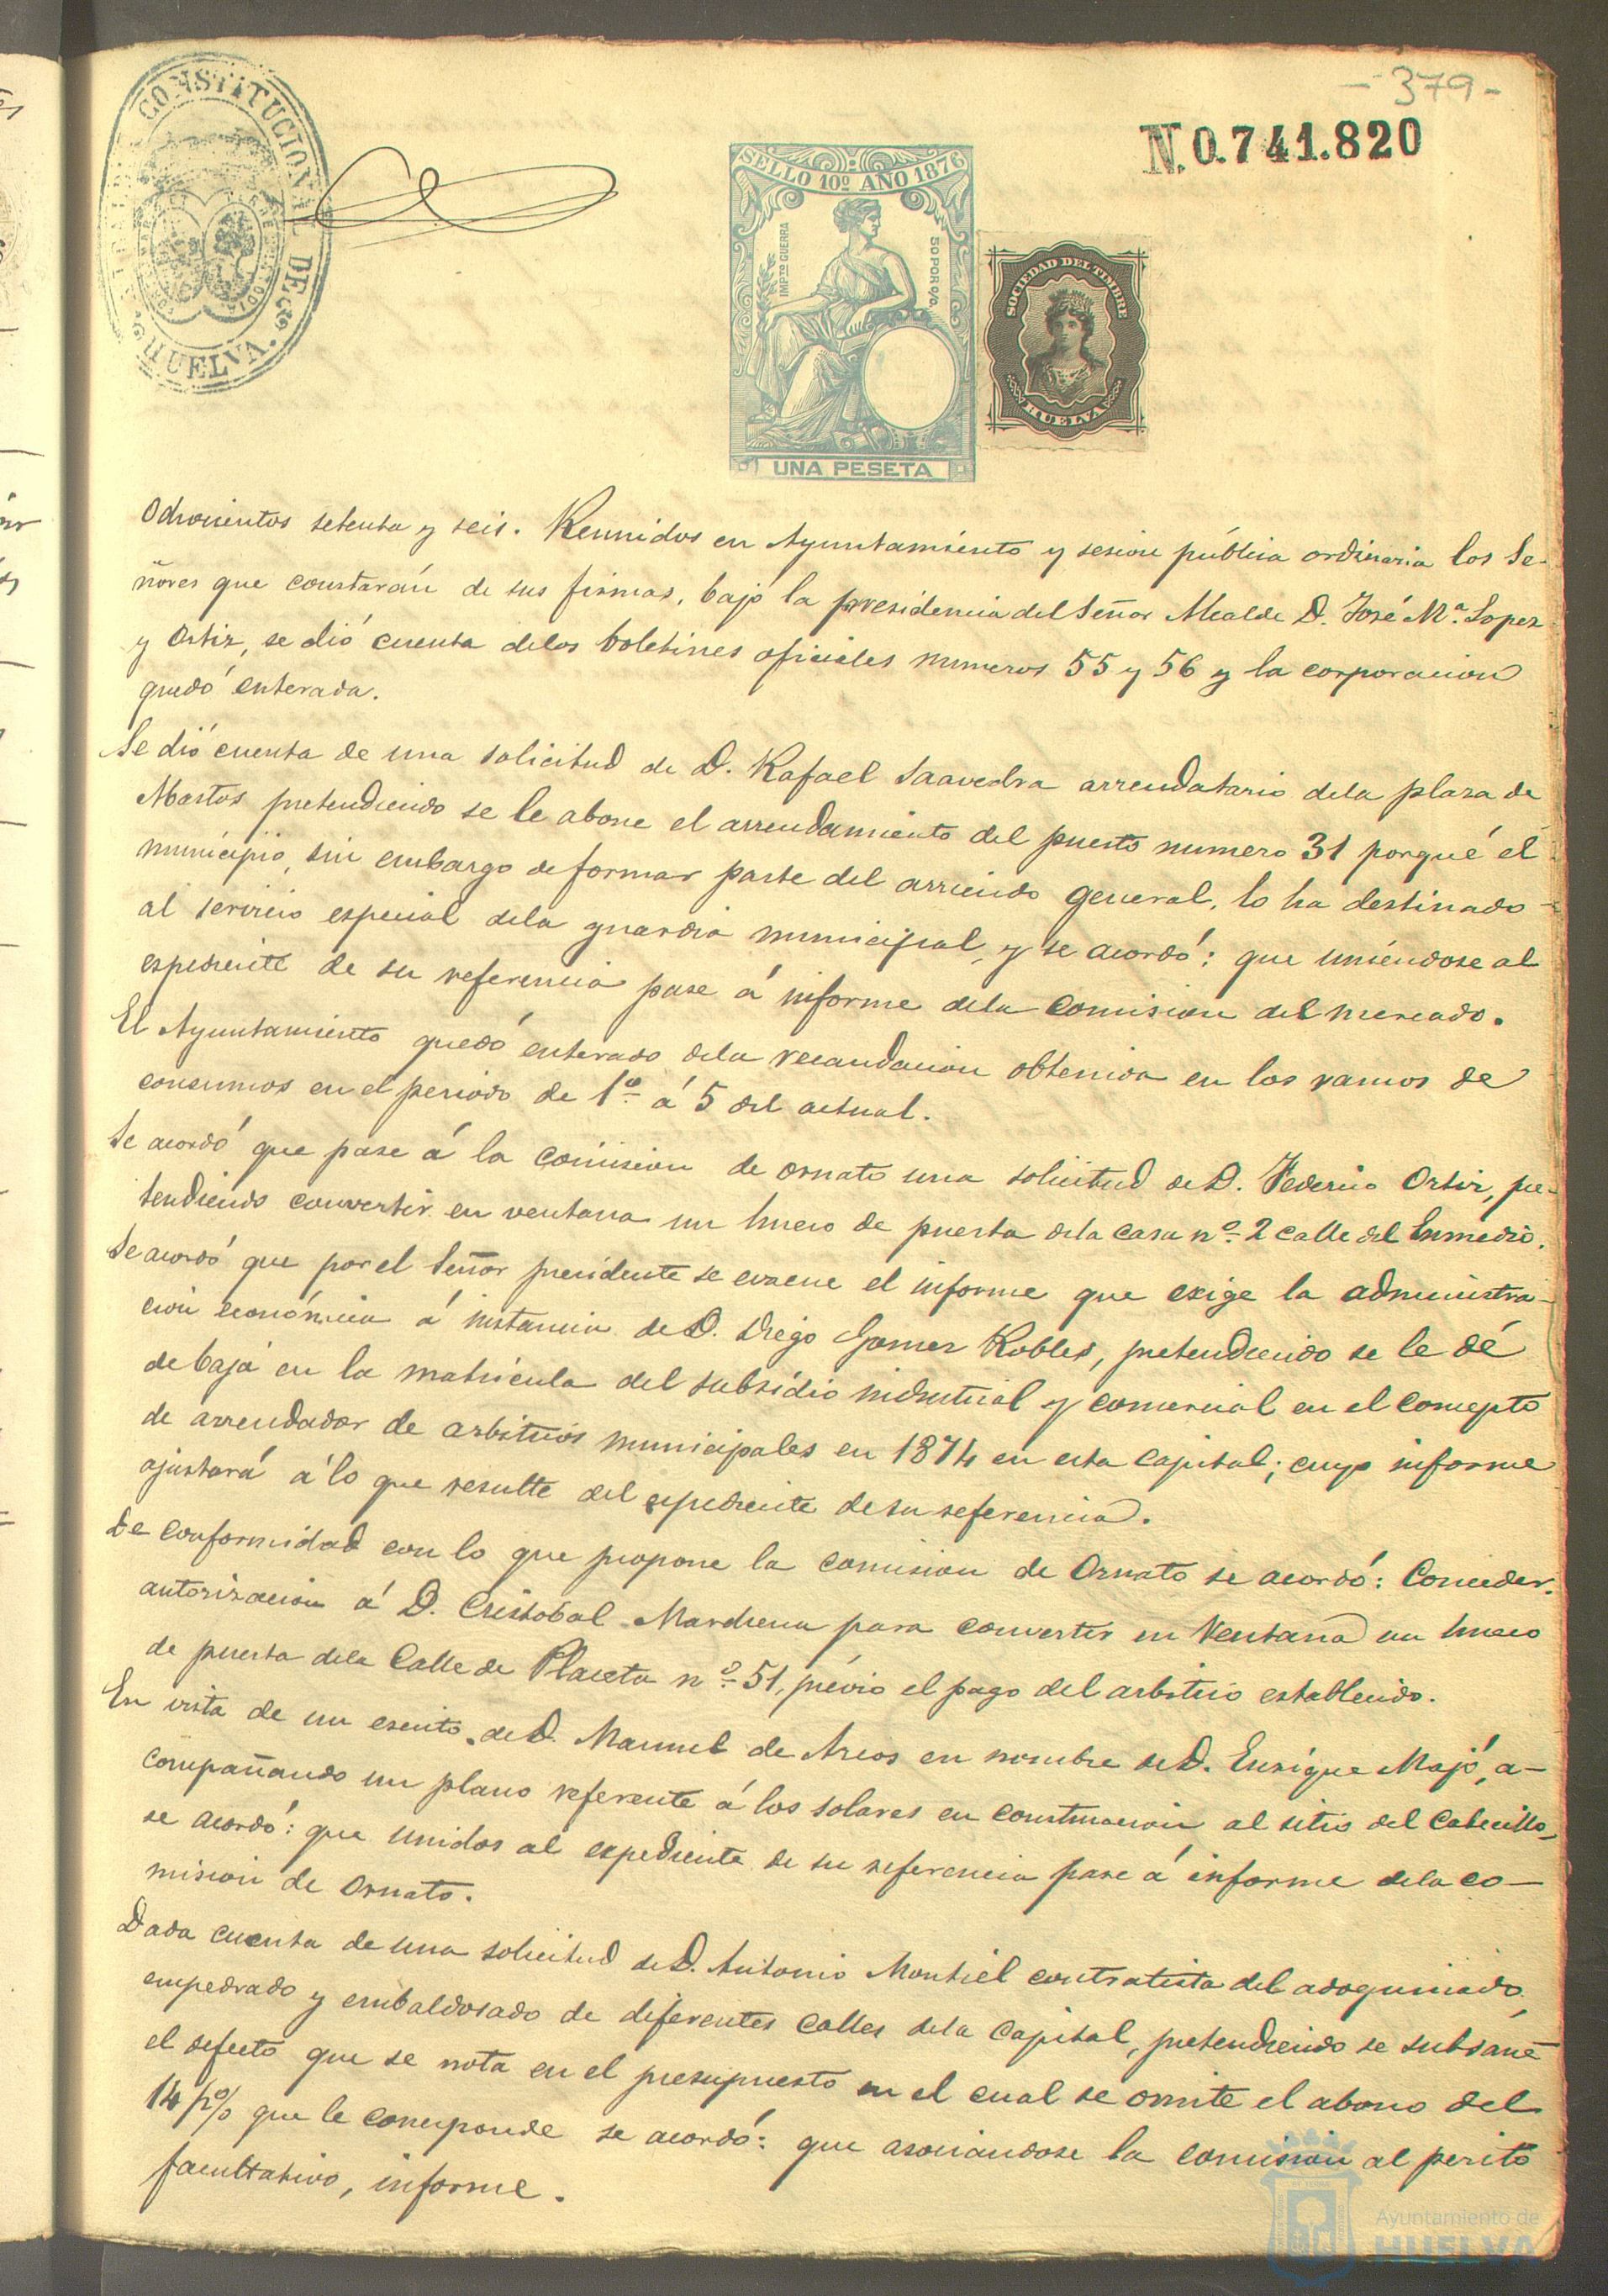 - 379 -
N. 0.741.820
CONSTITUCIONAL DE HUELVA.
SELLO 10º AÑO 1876
IMPTO GUERRA
50 POR 0/0.
UNA PESETA
SOCIEDAD DEL TIMBRE
HUELVA
Ochocientos setenta y seis. Reunidos en Ayuntamiento y sesion pública ordinaria los Se-
ñores que constarán de sus firmas, bajo la presidencia del Señor Alcalde D. José Mª. Lopez
y Ortiz, se dió cuenta delos boletines oficiales numeros 55 y 56 y la corporacion
quedó enterada.
Se dió cuenta de una solicitud de D. Rafael Saavedra arrendatario dela plaza de
Abastos pretendiendo se le abone el arrendamiento del puesto numero 31 porqué el
municipio, sin embargo de formar parte del arriendo general, lo ha destinado
al servicio especial dela guardia municipal, y se acordó: que uniéndose al
espediente de su referencia pase á informe dela Comision del mercado.
El Ayuntamiento quedó enterado dela recaudacion obtenida en los ramos de
consumos en el periodo de 1º á 5 del actual.
Se acordó que pase á la comision de ornato una solicitud de D. Federico Ortiz, pre-
tendiendo convertir en ventana un hueco de puerta dela casa nº 2 calle del Enmedio.
Se acordó que por el Señor presidente se evacue el informe que exige la administra-
cion económica á instancia de D. Diego Gomez Robles, pretendiendo se le dé
de baja en la matrícula del subsidio industrial y comercial en el concepto
de arrendador de arbitrios municipales en 1874 en esta capital; cuyo informe
ajustará á lo que resulte del espediente de su referencia.
De conformidad con lo que propone la comision de Ornato se acordó: Conceder
autorizacion á D. Cristobal Marchena para convertir en Ventana un hueco
de puerta dela Calle de Placeta nº 51, prévio el pago del arbitrio establecido.
En vista de un escrito de D. Manuel de Arcos en nombre de D. Enrique Majó, a-
compañando un plano referente á los solares en construccion al sitio del Cabecillo,
se acordó: que unidos al espediente de su referencia pase á informe dela co-
mision de Ornato.
Dada cuenta de una solicitud de D. Antonio Montiel contratista del adoquinado,
empedrado y embaldosado de diferentes calles dela Capital, pretendiendo se subsane
el defecto que se nota en el presupuesto en el cual se omite el abono del
14 p% que le corresponde se acordó: que asociándose la comision al perito
facultativo, informe.
Ayuntamiento de
HUELVA